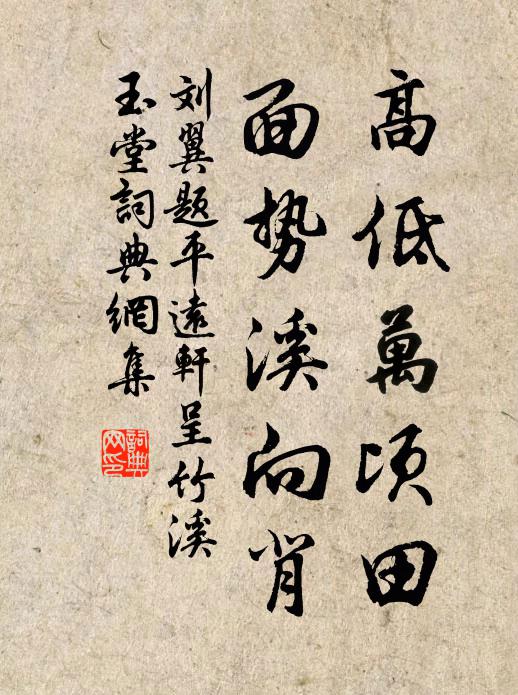 高低萬頃田
面勢溪向背
刘翼题平遠軒呈竹溪
玉堂詞典網集
詞典
网印